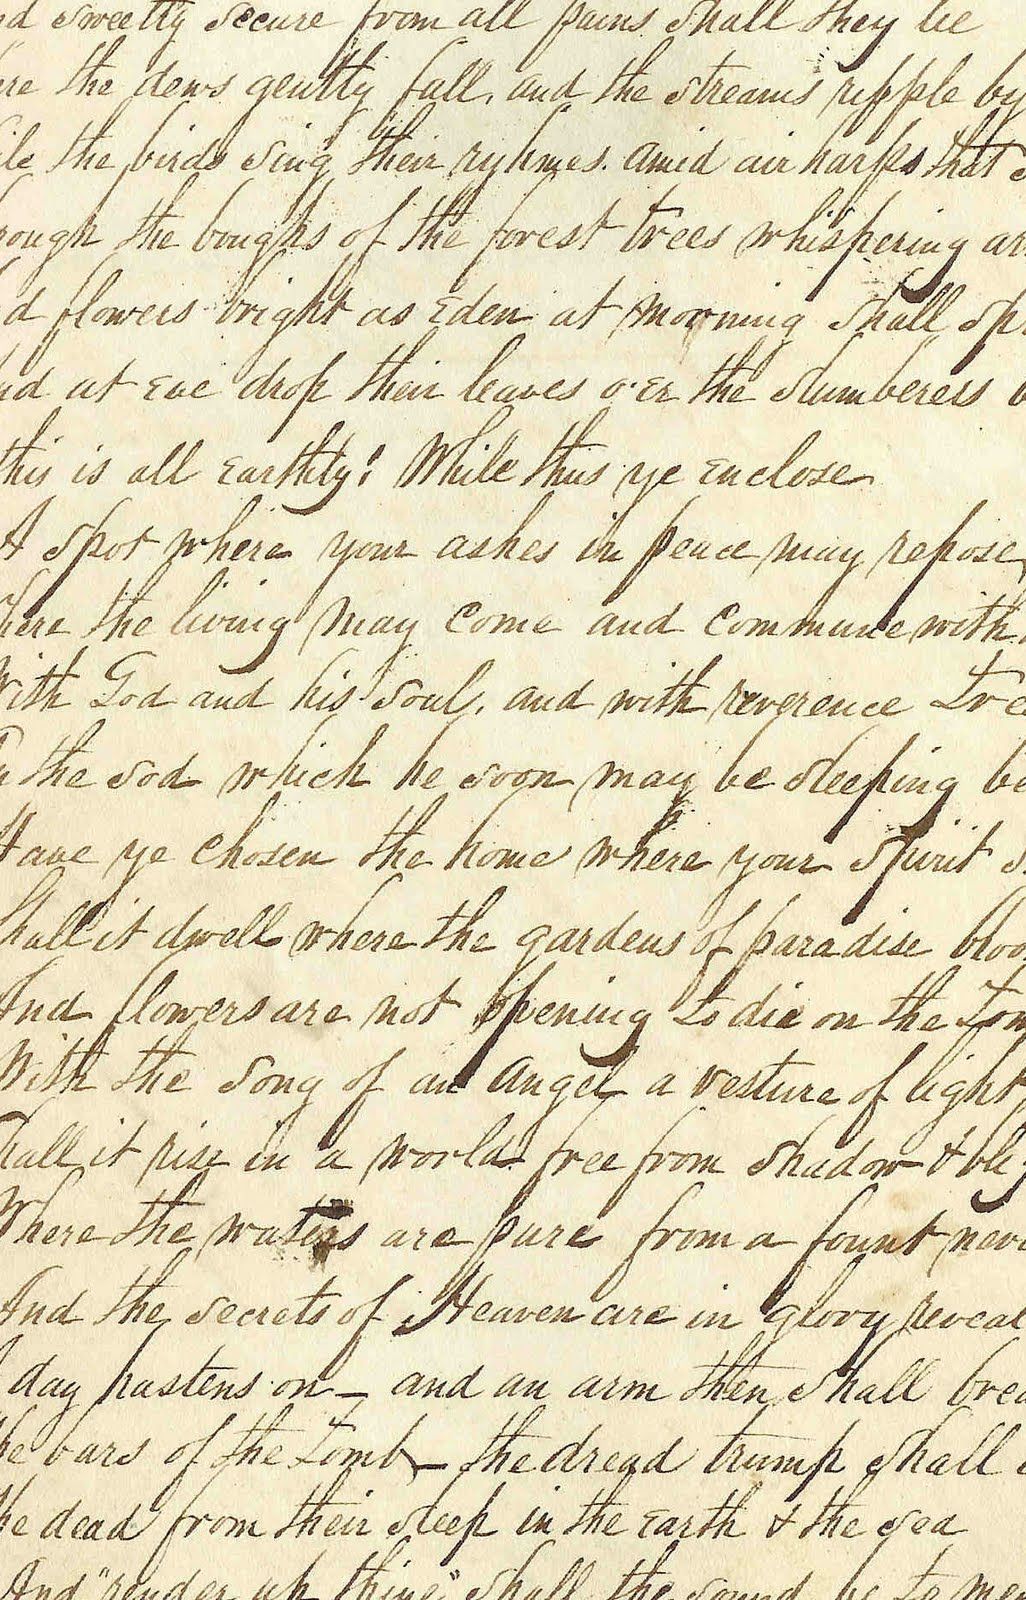 nd sweetly secure from all pains shall they be
ere the dews gently fall, and the streams ripple by
ile the birds sing their ryhmes. amid air harps that
rough the boughs of the forest trees whispering
d flowers bright as Eden at morning shall sp
nd at Eve drop their leaves o'er the slumberers
this is all Earthly! While thus ye Enclose
A Spot where your ashes in peace may repose,
here the living may come and commune with
With God and his soul, and with reverence tre
the sod which he soon may be sleeping be
Have ye chosen the home where your spirit
Shall it dwell where the gardens of paradise bloo
And flowers are not opening to die on the Tom
With the song of an Angel a vesture of light,
hall it rise in a world free from shadow & bli
Where the waters are pure from a fount neve
And the secrets of Heaven are in glory reveal
day hastens on — and an arm then shall brea
he bars of the Tomb — the dread trump shall
he dead from their sleep in the Earth & the Sea
And "render up thine" shall the sound